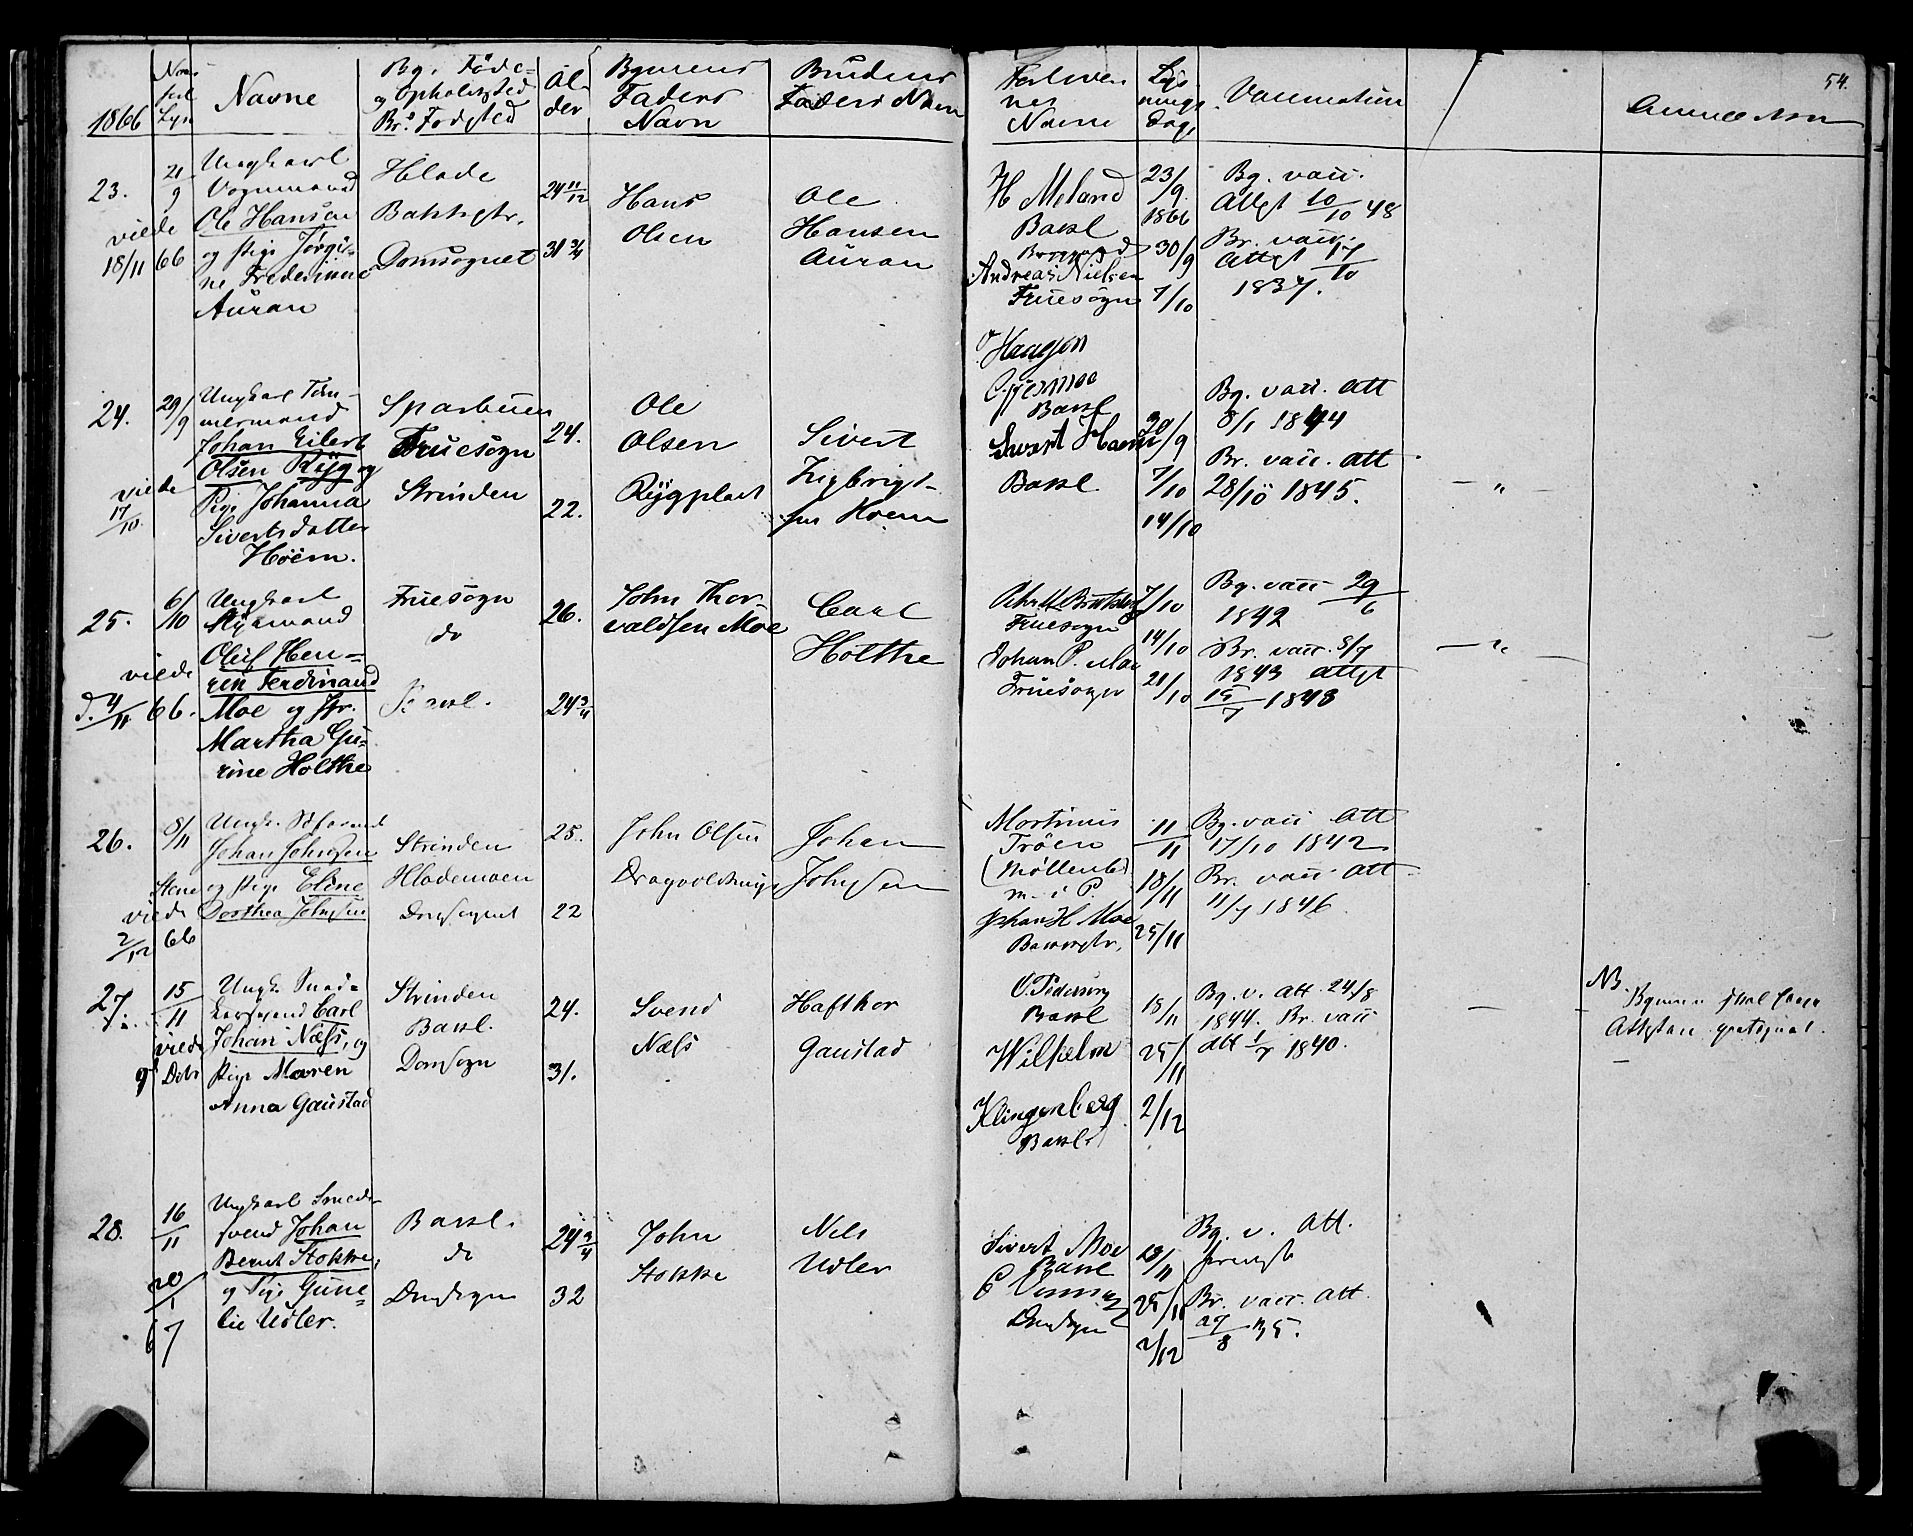 54.
1866
Navne
Bg. Føde-
og Opholdssted
Br.s Fødested
Al-
der
Bgmens
Faders
Navn
Brudens
Faders Navn
Forlover
nes
Navne
Lys
nings
Dage
Vaccination
Anmelderen
23.
21/9
viede
18/11 66
Ungkarl
Vognmand
Ole Hansen
og Pige Jørgi-
ne Frederikke
Auran
Hlade
Bakkgtr.
Domsognet
24 11/12
31 3/4
Hans
Olsen
Ole
Hansen
Auran
H Meland
Bakl
Andreas Nielsen
Fruesogn
23/9
1866
30/9
7/10
Bg. vacc.
Attest 10/10 48
Br. vacc.
Attest 17/10
1837.
24.
29/9
viede
17/10.
Ungkarl Tøm-
mermand
Johan Eilert
Olsen Ryg og
Pige Johanna
Sivertsdatter
Høem.
Sparbuen
Fruesogn
Strinden
24.
22.
Ole
Olsen
Rygplads
Sivert
Ingbrigt-
sen Hoem
Haagen
Gjermoe
Bakl
Sivert Hoem
Bakl
30/9
7/10
14/10
Bg. vacc. Att
8/1 1844
Br. vacc. Att
28/10 1845.
— „ —
25.
6/10
viede
d. 4/11 66.
Ungkarl
Oluf Hen-
rik Ferdinand
Moe og Jfr.
Martha Gu-
rine Holthe
Fruesogn
do
Bakl.
26.
24 3/4
John Thor
valdsen Moe
Carl
Holthe
Fruesogn
Johan P. Moe
Fruesogn
7/10
14/10
21/10
Bg. vacc 29/6
1842
Br. vacc. 8/7
1843 Attest
15/7 1843
— „ —
26.
8/11
viede
2/12 66
Ungk.
Johan Johnsen
og Pige Eline
Dorthea Johnsen
Strinden
Hlademoen
Domsognet
25.
22
John Olsen
Johan
Johnsen
Martinus
Trøen
(Møllenb)
m. i P.
Johan H Moe
11/11
18/11
25/11
Bg. vacc Att
17/10 1842
Br. vacc. Att
11/7 1846.
27.
15/11
viede
9 Debr
Ungk. Sned-
kersvend Carl
Johan Næss, og
Pige Maren
Anna Gaustad
Strinden
Bakl.
Domsogn
24.
31.
Svend
Næss
Hafthor
Gaustad
O. Pedersen
Bakl
Wilhelm
Klingenberg
Bakl
18/11
25/11
2/12
Bg. v. Att 24/8
1844. Br. vacc
Att 1/7 1840.
—
NB.
28.
16/11
20/1
67
Ungkarl Smede-
svend Johan
Bernt Stokke,
og Pige Gune-
lie Udler.
Bakl.
do
Domsogn
24 3/4
32
John
Stokke
Nils
Udler
Sivert Moe
Bakl
Domsogn
18/11
25/11
2/12
Bg. v. Att.
Br. vacc. Att.
27/8 35.